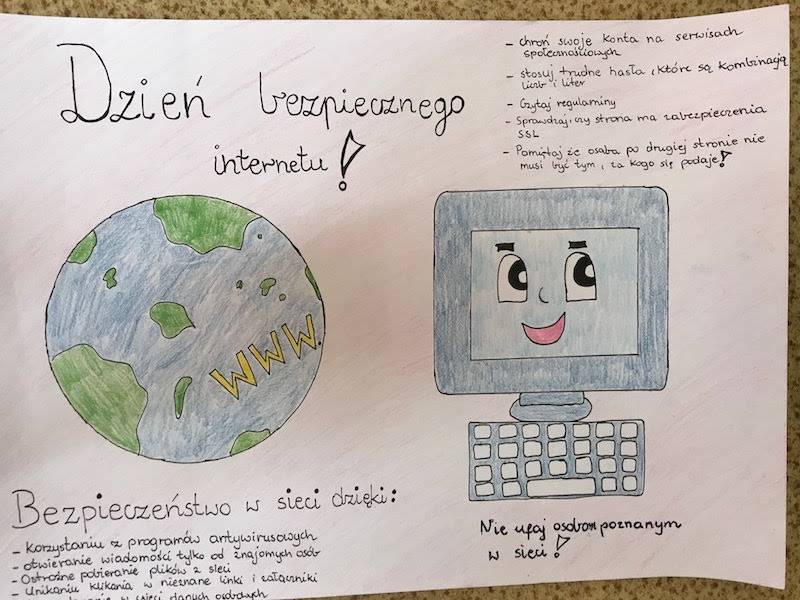 Dzień bezpiecznego
internetu!
- chroń swoję konta na serwisach
społecznościowych
- stosuj trudne hasła, które są kombinacją
liczb i liter
- Czytaj regulaminy
- Sprawdzaj, czy strona ma zabezpieczenia
SSL
- Pamiętaj że osoba po drugiej stronie nie
musi być tym, za kogo się podaje!
WWW.
Bezpieczeństwo w sieci dzięki:
- korzystaniu z programów antywirusowych
- otwieranie wiadomości tylko od znajomych osób
- Ostrożne pobieranie plików z sieci
- Unikaniu klikania w nieznane linki i załączniki
w sieci danych osobowych
Nie ufaj osobom poznanym
w sieci!